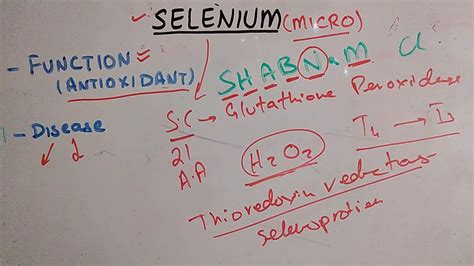 SELENIUM (MICRO)
- FUNCTION
(ANTIOXIDANT)
SHABNAM Cl
S.C → Glutathione Peroxidase
- Disease
21
A.A
H2O2
T4 → T3
Thioredoxin reductas
selenoprotien